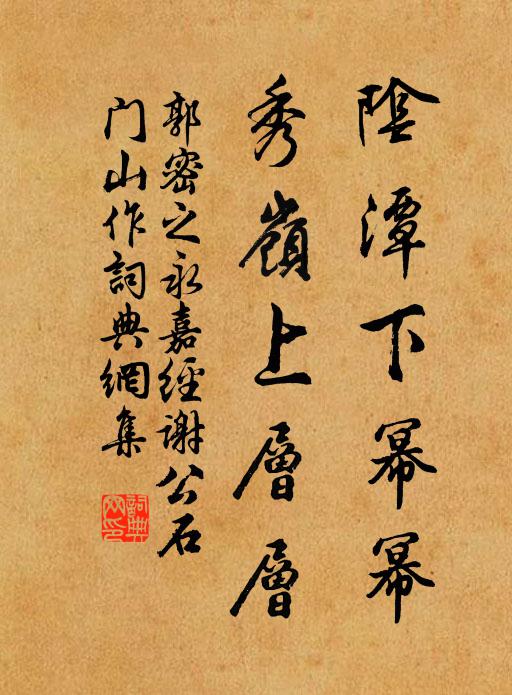 陰潭下冪冪
秀嶺上層層
郭密之永嘉經謝公石
门山作詞典網集
詞典網印